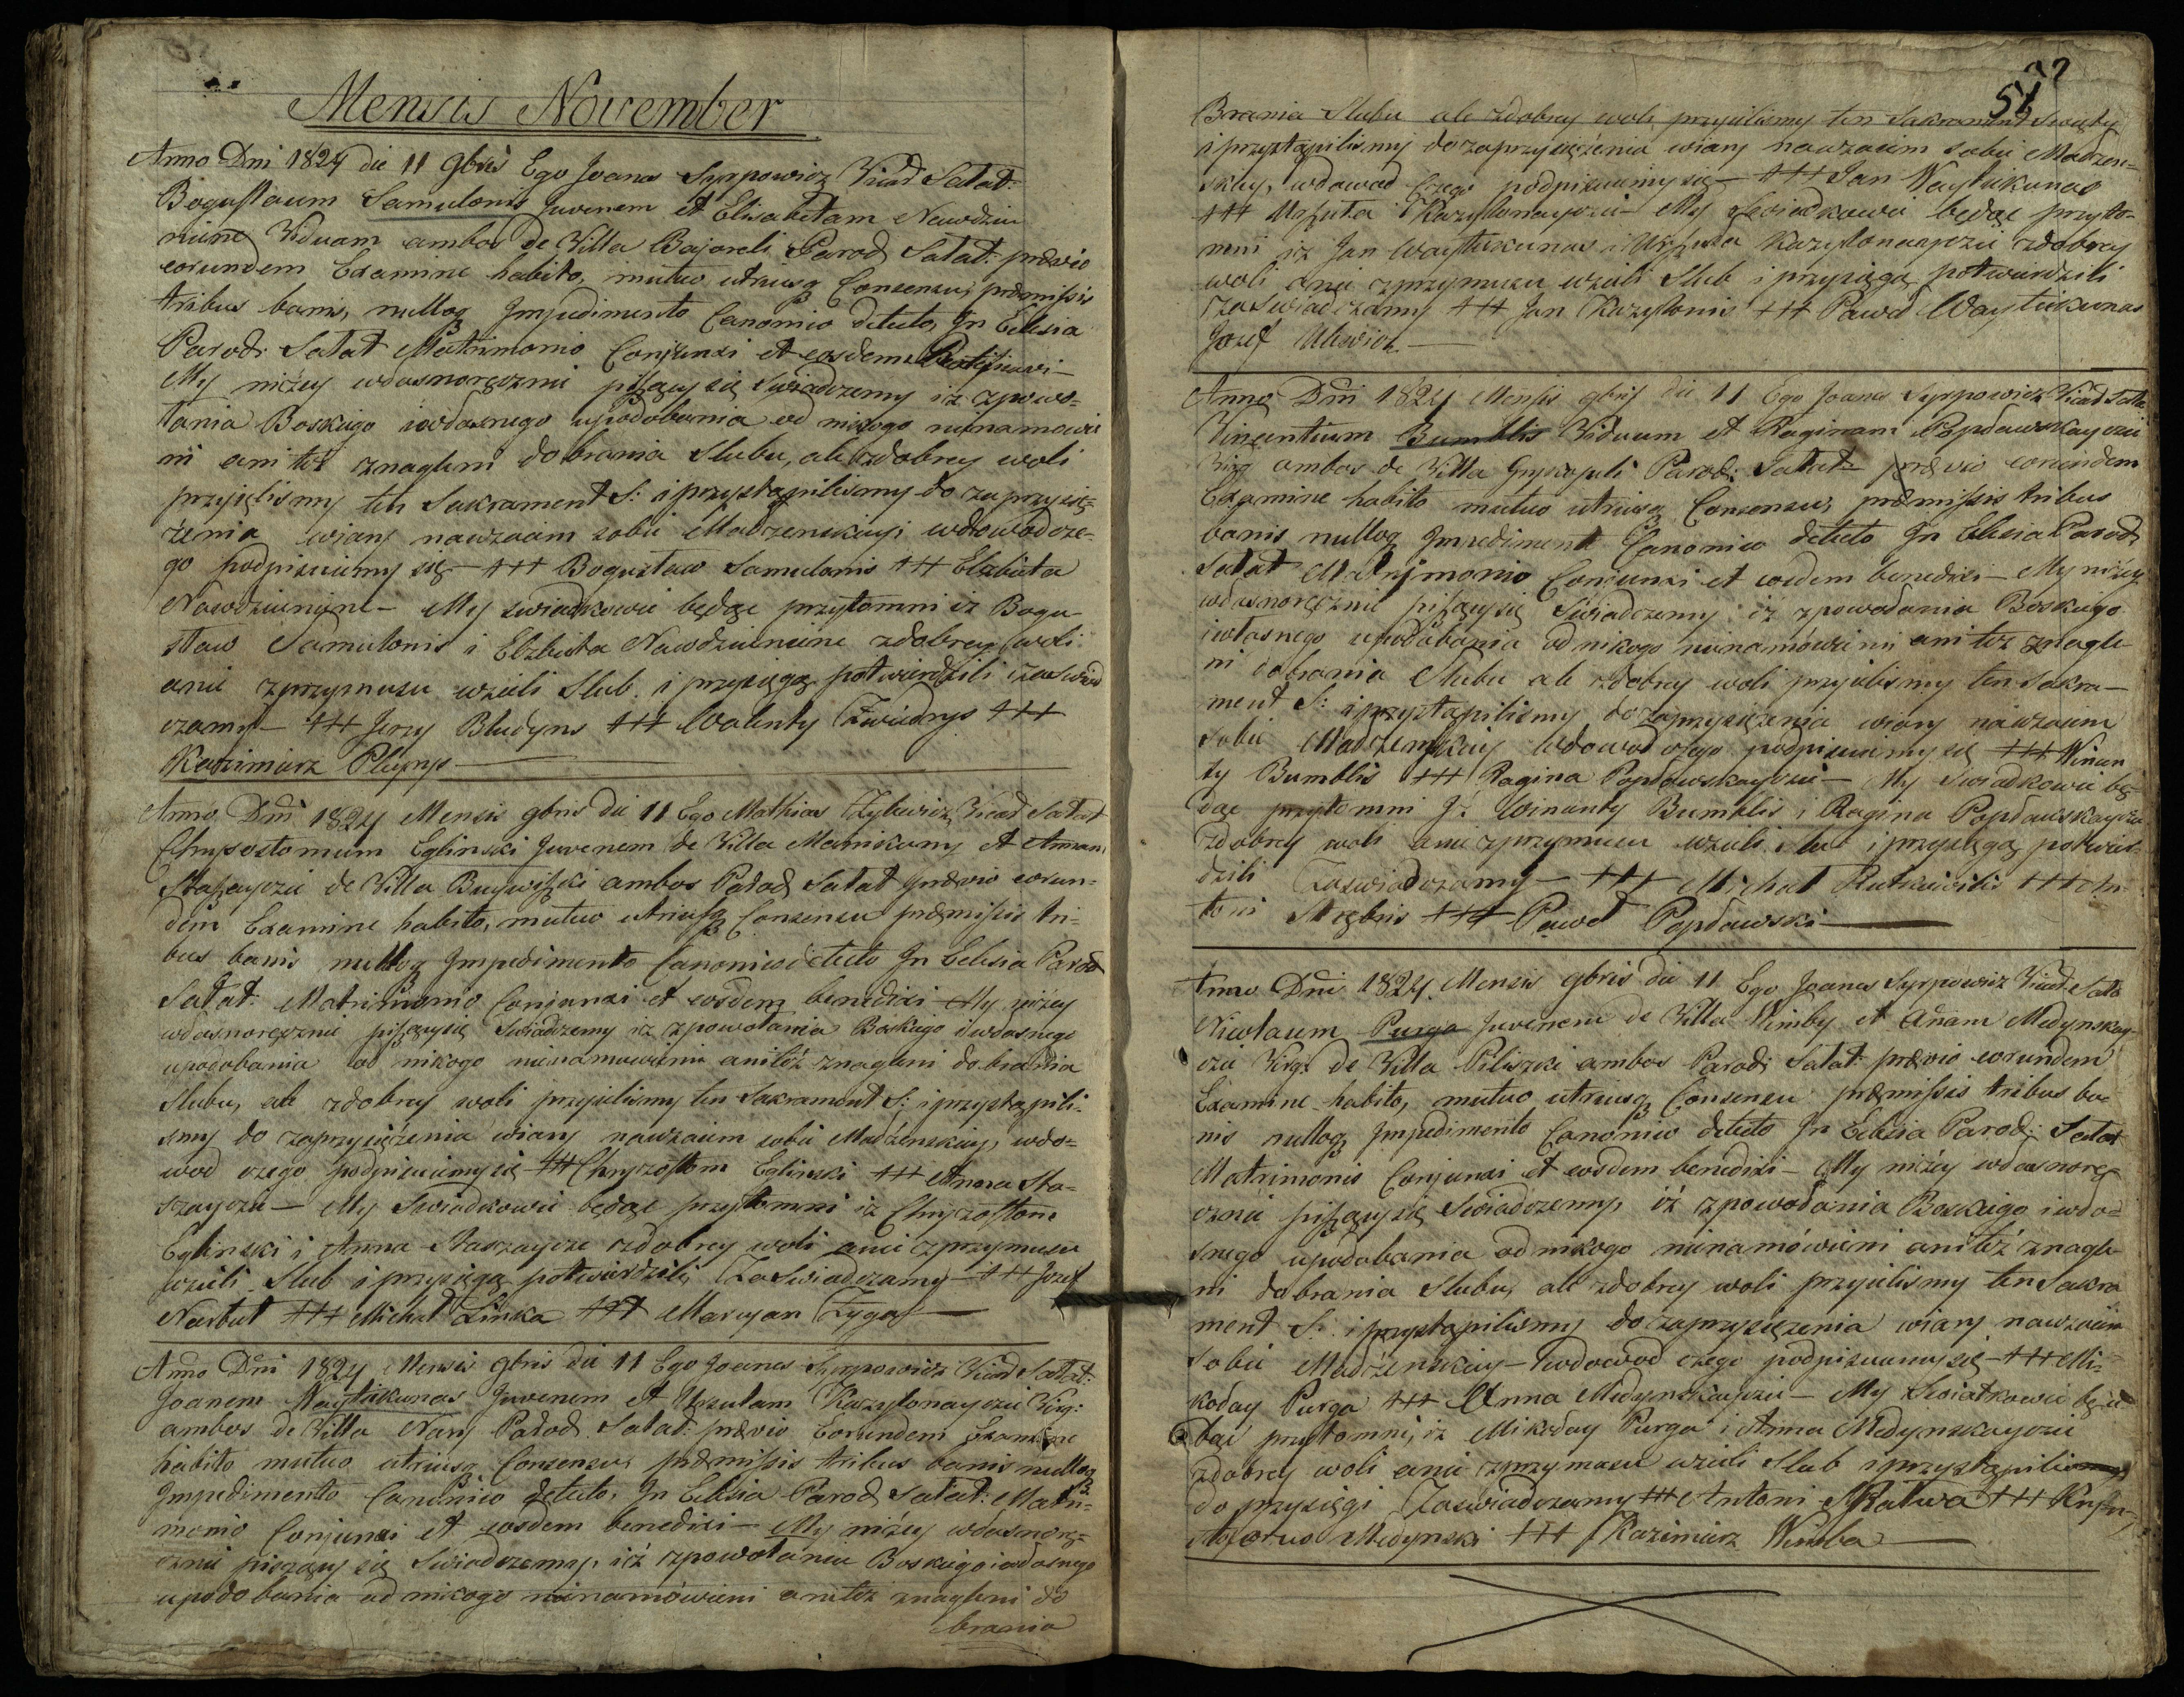 Mensis November
Anno Dni 1824 die 11 9bris Ego Joanes Syrpowicz Vicad Satat:
Bogustaum Samulonis Juvenem et Elisabetam Nawdziu
niene Viduam ambos de Villa Bajoreli Parod Satat: prævio
eorundem Examine habito, mutuo utriusq Consensu, præmissis
tribus banis, nulloq Impedimento Canonico detecto, In Eclesia
Parod: Satat Matrimonio Conjunxi et eosdem
My niżey własnoręcznie piszący się Swiadczemy iż zpowo-
łania Boskiego iwłasnego upodobania od nikogo nienamowie
ni ani też znagleni dobrania Slubu, ale zdobrey woli
przyieliśmy ten Sakrament S: iprzystąpiliśmy do zaprzysię-
żenia wiary nawzaiem sobie Madzenskiey, wdowod cze-
go podpisuiemy się – +++ Bogustaw Samulonis +++ Elzbieta
Nawdziuniene – My swiadkowie będąc przytomni iz Bogu-
staw Samulonis i Elzbieta Nawdziuniene zdobrey woli
anie zprzymusu wzieli Slub i przysięgą potwierdzili zaswiad
czamy – +++ Jerzy Bludyns +++ Walenty Zwiedrys +++
Kazimierz Plupys
Anno Dni 1824 Mensis 9bris die 11 Ego Mathias Zylewicz Vicad Satat
Chrysostomum Eglinski Juvenem de Villa Manikuny et Annam
Staszayczie de Villa Buywiszki ambos Parod Satat prævio eorun-
dem Examine habito, mutuo utriusq Consensu præmissis tri-
bus banis nulloq Impedimento Canonico detecto In Eclesia Parod
Satat: Matrimonio Conjunxi et eosdem benedixi – My niżey
własnoręcznie piszący się Swiadczemy iż zpowołania Boskiego iwłasnego
upodobania od nikogo nienamowieni aniteż znagleni dobrania
Slubu, ale zdobrey woli przyieliśmy ten Sakrament S: iprzystąpili-
smy do zaprzysiężenia wiary nawzaiem sobie Madżenskiey, wdo-
wod czego podpisuiemy się +++ Chryzostom Eglinski +++ Anna Sta-
szayczie – My Swiadkowie będąc przytomni iz Chryzostom
Eglinski i Anna Staszaycze zdobrey woli anie zprzymusu
wzieli Slub i przysięgą potwierdzili, Zaswiadczamy – +++ Jozef
Narbut +++ Michał Linka +++ Maryan Zyga
Anno Dni 1824 Mensis 9bris die 11 Ego Joanes Syrpowicz Vicad Satat:
Joanem Waytukunas Juvenem et Ursulam Kazylonayczie Virg:
ambos de Villa Nary Parod Satat: prævio Eorundem Examine
habito mutuo utriusq Consensu, præmissis tribus banis nulloq
Impedimento Canonico detecto, In Eclesia Parod Satat: Matri-
monio Conjunxi et eosdem benedixi – My niżey własnorę-
cznie piszący się Swiadczemy, iż zpowołania Boskiego iwłasnego
upodobania od nikogo nienamówieni aniteż znagleni do
brania
51
Brania Slubu ale zdobrey woli przyieliśmy ten Sakrament Swięty
i przystąpiliśmy do zaprzysiężenia wiary nawzaiem sobie Madzen-
skiey, wdowod czego podpisuiemy się – +++ Jan Waytukunas
+++ Urszula Kazylonayczie – My Swiadkowie będąc przyto-
mni iz Jan Waytukunas i Urszula Kazylonayczie zdobrey
woli anie zprzymusu wzieli Slub i przysięgą potwierdzili
zaswiadczamy +++ Jan Kazylonis +++ Paweł Waytukunas
Jozef Ulewicz
Anno Dni 1824 Mensis 9bris die 11 Ego Joanes Syrpowicz Vicad Satt
Vincentium Bumblis Viduum et Raginam Popławskayczie
Virg ambos de Villa Parod: Satat prævio eorundem
Examine habito mutuo utriusq Consensu, præmissis tribus
banis nulloq Impediment Canonico detecto In Eclesia Parod
Satat Matrijmonio Conjunxi et eosdem benedixi – My niżey
własnoręcznie piszący się Swiadczemy iż zpowołania Boskiego
iwłasnego upodobania od nikogo nienamówieni ani też znagle
ni dobrania Slubu ale zdobrey woli przyieliśmy ten Sakra-
ment S: iprzystąpiliśmy do zaprzysiężenia wiary nawzaiem
sobie Madzenskiey wdowod czego podpisuiemy się +++ Wincen
ty Bumblis +++ Ragina Popławskayczie – My Swiadkowie bę-
dąc przytomni Jż Wincenty Bumblis i Ragina Popławskaycze
zdobrey woli anie zprzymusu wzieli slub i przysięgą potwier-
dzili Zaswiadczamy – +++ Michał Rutkiewicz +++ An-
toni Strębis +++ Paweł Popławski
Anno Dni 1824 Mensis 9bris die 11 Ego Joanes Syrpowicz Vicad Sata
Nicolaum Purga Juvenem de Villa Wimby et Annam Medynskay-
czie Virg: de Villa Piliszki ambos Parod: Satat: prævio eorundem
Examine habito, mutuo utriusq Consensu præmissis tribus ba
nis nulloq Impedimento Canonico detecto In Eclesia Parod: Satat
Matrimonio Conjunxi et eosdem benedixi – My niżey własnorę
cznie piszący się Swiadczemy, iż zpowołania Boskiego iwła-
snego upodobania od nikogo nienamówieni aniteż znagle
ni dobrania Slubu, ale zdobrey woli przyieliśmy ten Sakra
ment S: iprzystąpiliśmy do zaprzysiężenia wiary nawzaiem
sobie Madżenskiey – wdowod czego podpisuiemy się – +++ Mi-
kołay Purga +++ Anna Medynskayczie – My Swiatkowie
przytomni, iz Mikołay Purga i Anna Medynskayczie
zdobrey woli anie zprzymusu wzieli Slub i przystąpili
do przysięgi Zaswiadczamy +++ Antoni +++
Medynski +++ Kazimierz Wimba